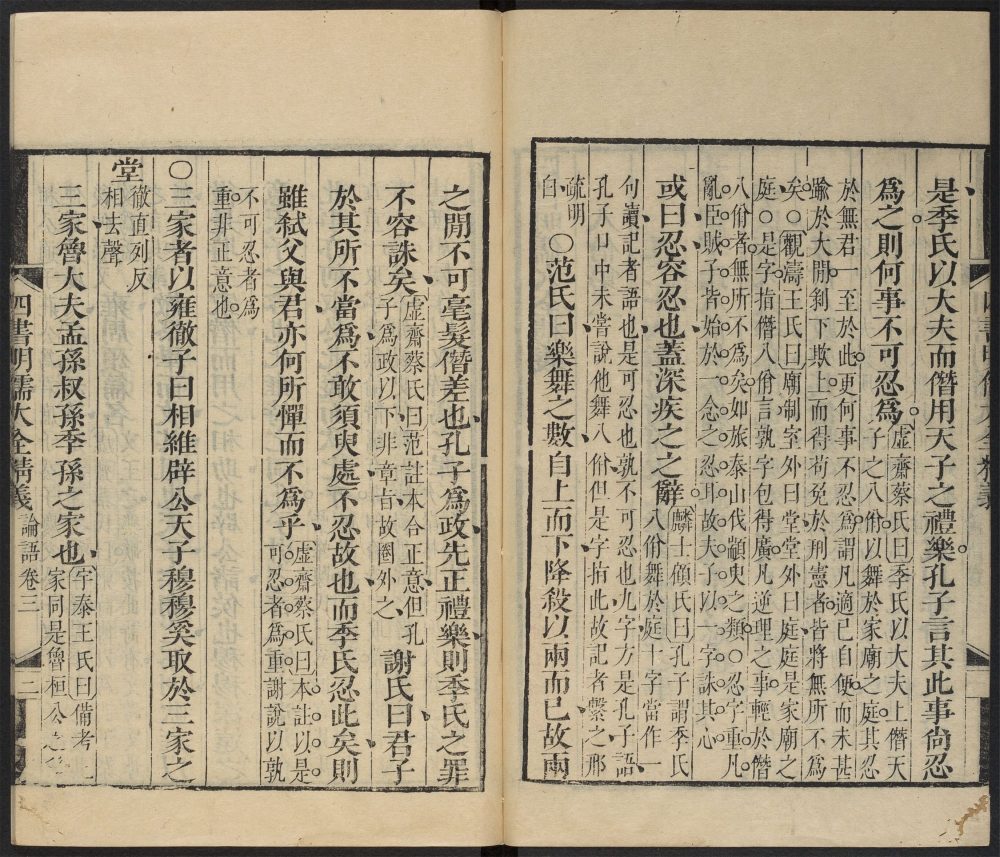 是季氏以大夫而僭用天子之禮樂孔子言其此事尙忍
爲之則何事不可忍爲
虛齋蔡氏曰季氏以大夫上僭天
子之八佾以舞於家廟之庭其忍
於無君一至於此更何事不忍爲謂凡適已自便而未甚
踰於大閒剝下欺上而得苟免於刑憲者皆將無所不爲
矣○觀濤王氏曰廟制室外曰堂堂外曰庭庭是家廟之
庭○是字指僭八佾言孰字包得廣凡逆理之事輕於僭
八佾者無所不爲矣如旅泰山伐顓臾之類○忍字重凡
亂臣賊子皆始於一念之忍耳故夫子以一字誅其心
或曰忍容忍也蓋深疾之之辭
麟士傾氏曰孔子謂季氏
八佾舞於庭十字當作一
句讀記者語也是可忍也孰不可忍也九字方是孔子語
孔子口中未嘗說他舞八佾但是字指此故記者繫之那
疏明
白
○范氏曰樂舞之數自上而下降殺以兩而已故兩
之閒不可毫髮僭差也孔子爲政先正禮樂則季氏之罪
不容誅矣
虛齋蔡氏曰范註本合正意但孔
子爲政以下非章旨故圈外之
謝氏曰君子
於其所不當爲不敢須臾處不忍故也而季氏忍此矣則
雖弑父與君亦何所憚而不爲乎
虛齋蔡氏曰本註以是
可忍者爲重謝說以孰
不可忍者爲
重非正意也
○三家者以雍徹子曰相維辟公天子穆穆奚取於三家之
堂
徹直列反
相去聲
三家魯大夫孟孫叔孫季孫之家也
宇泰王氏曰備考三
家同是魯桓公之
四書明儒大全精義
論語卷三
二